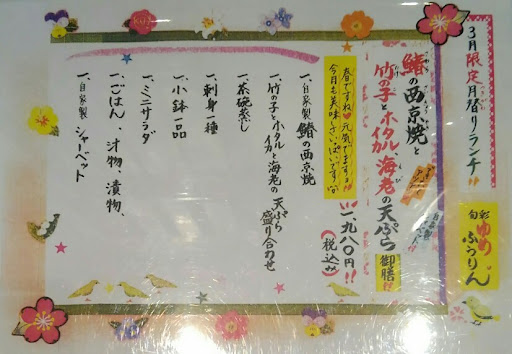 3月限定月替りランチ!!
旬彩 ゆめ
ふうりん
鰆の西京焼と
竹の子とホタルイカ海老の天ぷら御膳!!
春ですね 元気でますョ!!
今月も美味さいっぱいですョ
一、九八〇円!!
(税込み)
一、自家製 鰆の西京焼
一、竹の子とホタルイカと海老の天ぷら盛り合わせ
一、茶碗蒸し
一、刺身一種
一、小鉢一品
一、ミニサラダ
一、ごはん、汁物、漬物、
一、自家製 シャーベット